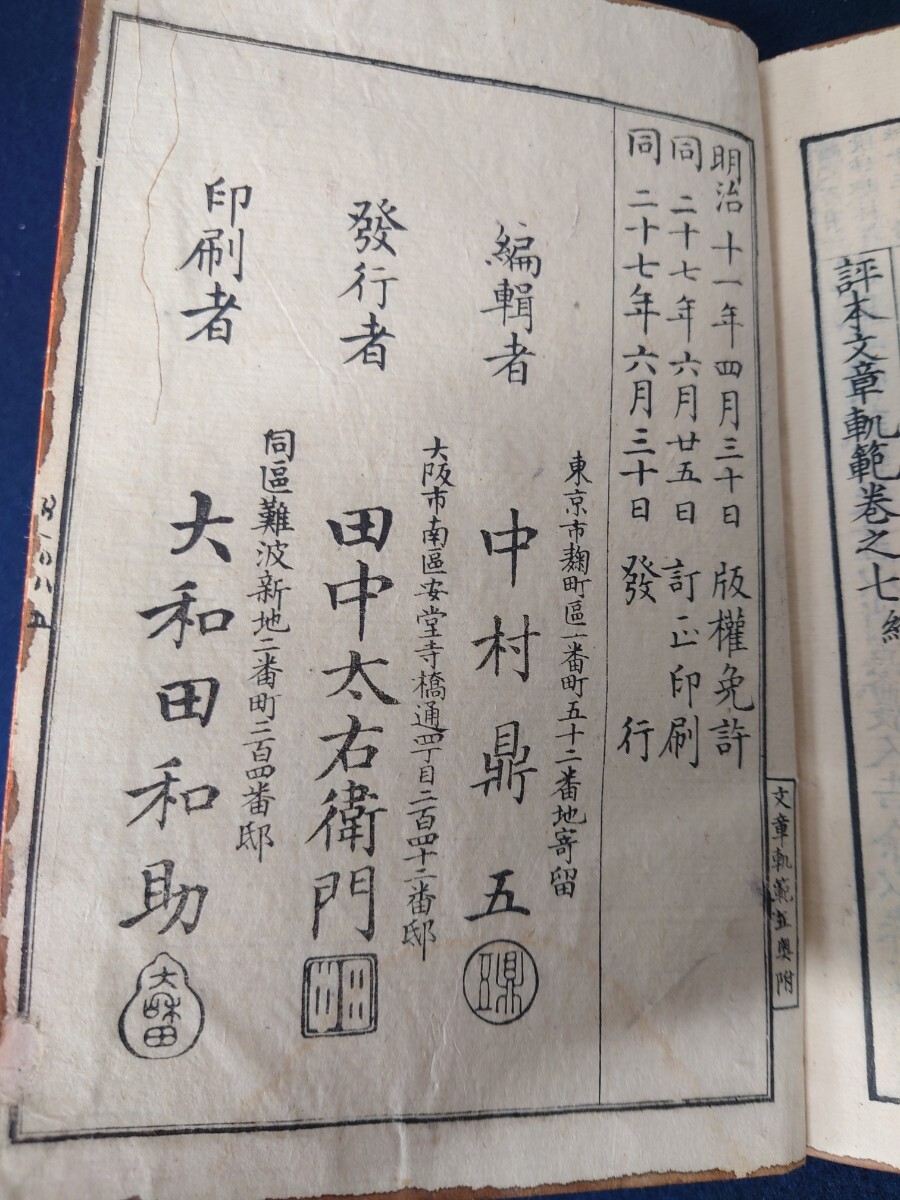 評本文章軌範巻之七終
文章軌範五奥附
明治十一年四月三十日版權免許
同二十七年六月廿五日訂正印刷
同二十七年六月三十日發行
東京市麹町區一番町五十二番地寄留
編輯者 中村鼎五
大阪市南區安堂寺橋通四丁目二百四十二番邸
發行者 田中太右衛門
同區難波新地二番町二百四番邸
印刷者 大和田和助
大和田